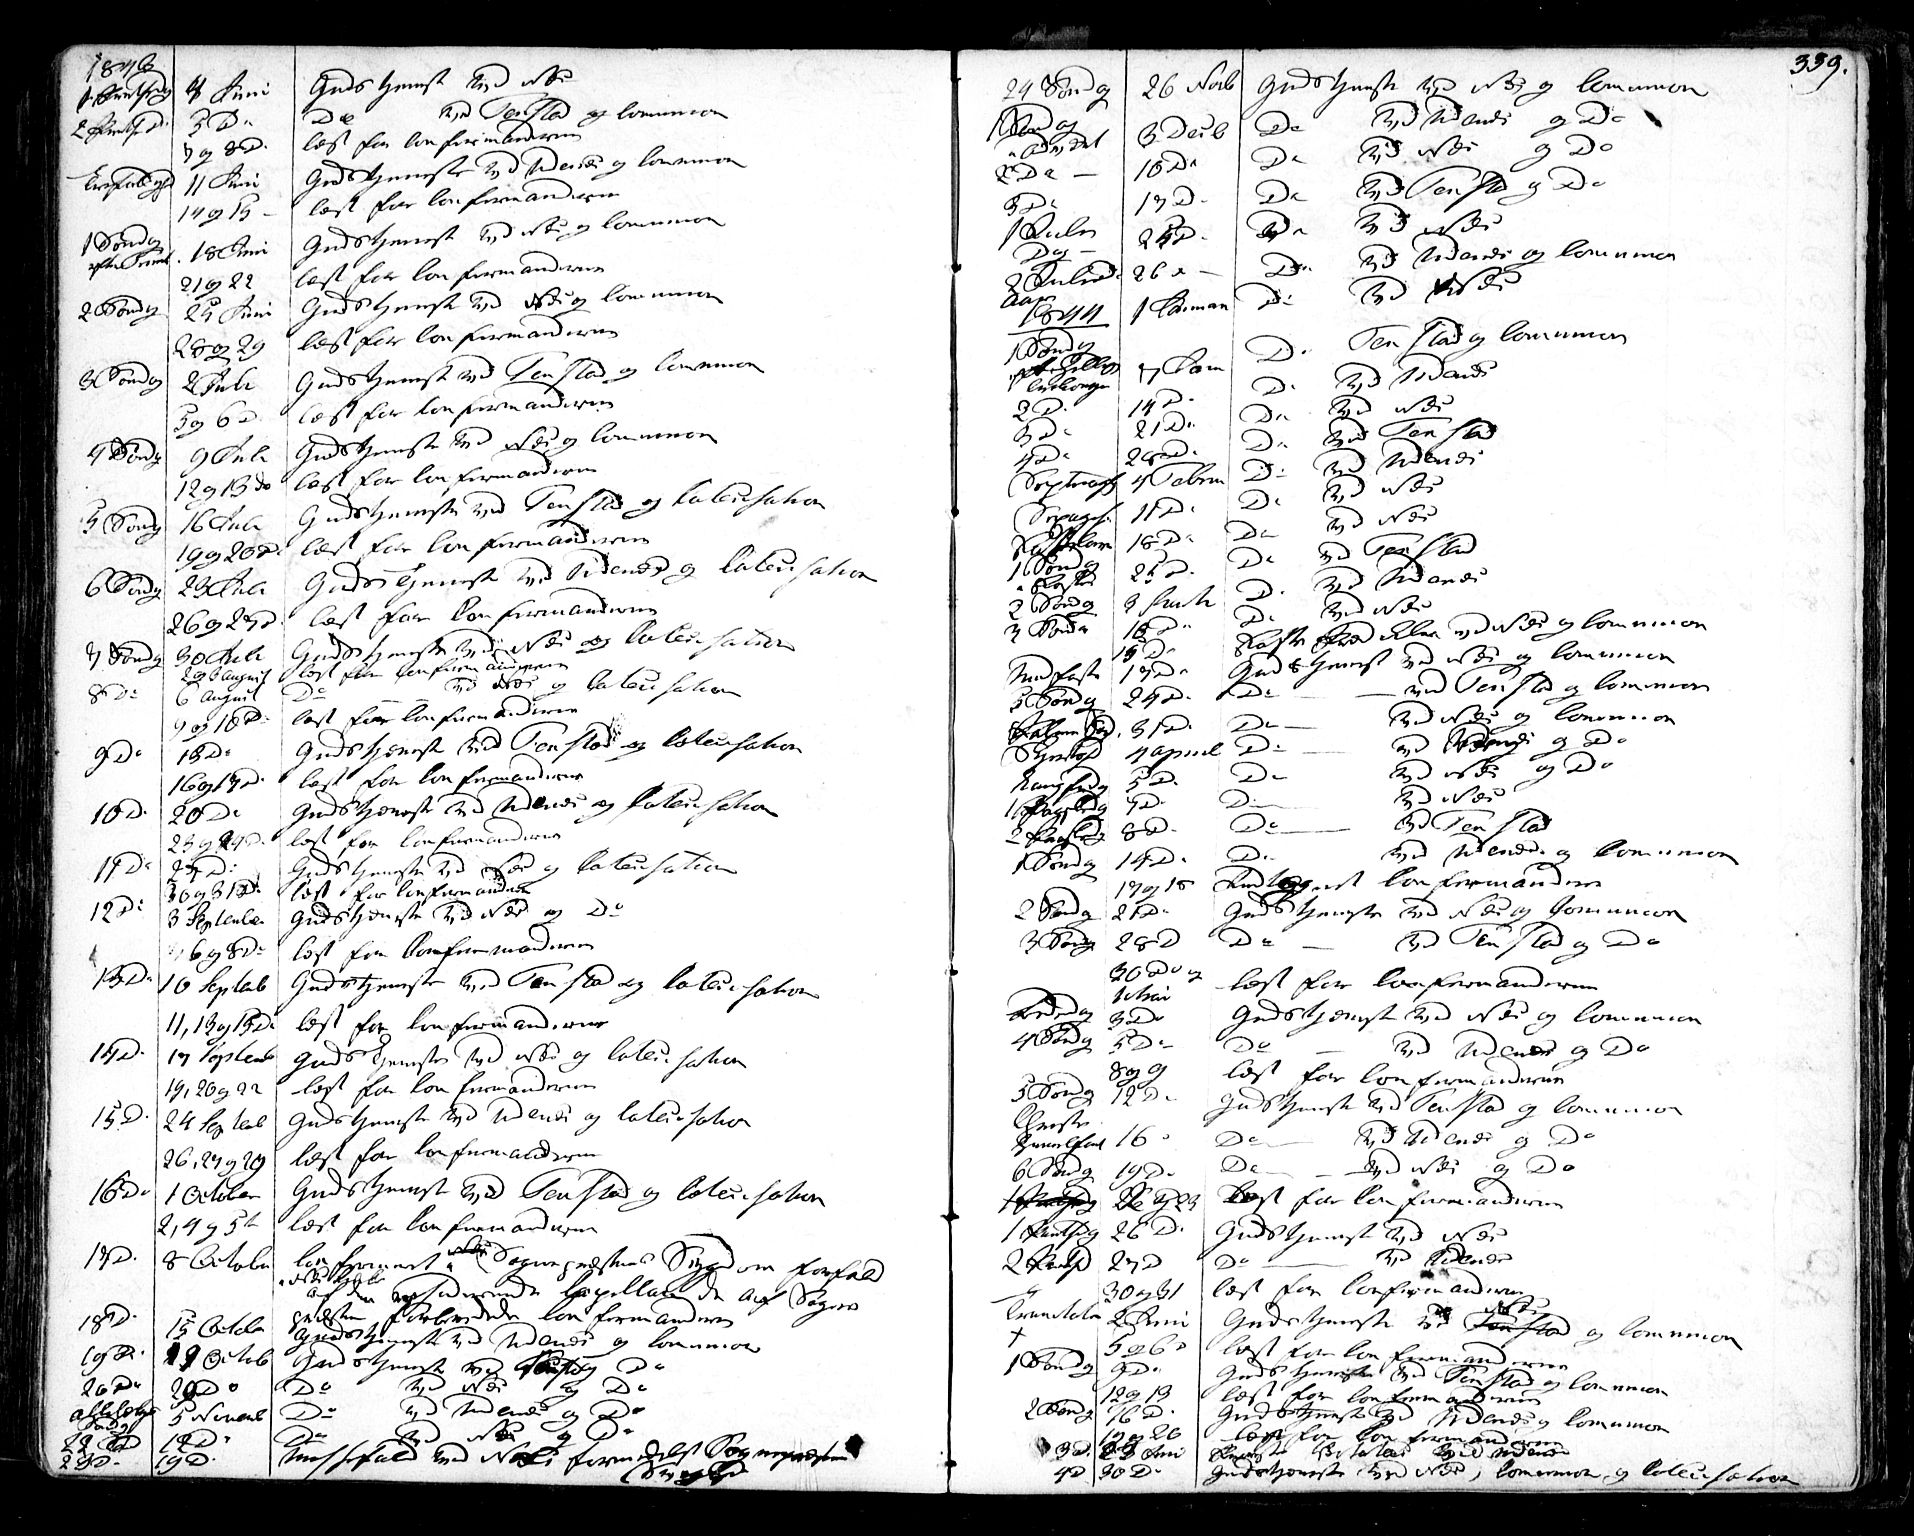 1843
4 Juni Guds tjenest ved Næs
5 Do Do ved Tenstad og Comunion
7 og 8 D. læst for Confirmanderne
11 Juni Gudstjeneste ved Udenæs og Comunion
14 og 15 – læst for Confirmanderne
1 Søndg efter Trinit. 18 Juni Gudstjenest ved Næs og Comunion
21 og 22 læst for Confirmanderne
2 Søndg 25 Juni Gudstjenest ved Næs og Comunion
28 og 29 læst for Confirmanderne
3 Søndg 2 Juli Gudstjenest ved Tenstad og Comunion
5 og 6 D. læst for Confirmanderne
4 Søndg 9 Juli Gudstjeneste ved Næs og Comunion
12 og 13 do læst for Confirmanderne
5 Søndg 16 Juli Gudstjeneste ved Tenstad og Catecisation
19 og 20 D. læst for Confirmanderne
6 Søndg 23 Juli Guds Tjeneste ved Udenæs og Catecisation
26 og 27 D. læst for Confirmanderne
7 Søndg 30 Juli Gudstjeneste ved Næs og Catecisation
2 og 3 August læst for Confirmanderne
8 Do 6 August Do ved Næs og Catecisation
9 og 10 D. læst for Confirmanderne
9 Do 13 Do Gudstjenest ved Tenstad og Catecisation
16 og 17 D. læst for Confirmanderne
10 D. 20 Do Gudstjeneste ved Udenæs og Catecisation
23 og 24 D. læst for Confirmanderne
11 Do 27 D. Gudstjeneste ved Næs og Catecisation
30 og 31 D. læst for Confirmanderne
12 D. 3 September Gudstjeneste ved Næs og Do
6 og 8 D. læst for Confirmanderne
13 Do 10 Septemb Gudstjeneste ved Tenstad og Catecisation
11, 13 og 15 D. læst for Confirmanderne
14 D. 17 Septemb Guds Tjeneste ved Næs og Catecisation
19, 20 og 22 læst for Confirmanderne
15 D. 24 Septemb Gudstjeneste ved Udenæs og Catecisation
26, 27 og 29 læst for Confirmanderne
16 Do 1 October Gudstjenest ved Tenstad og Catecisation
2, 4 og 5 læst for Confirmanderne
17 D. 8 October Confirmert Sognepræstens Sygdoms forfald
af den residerende Capellan de af Sogne
præsten forberedede Confirmanderne
18 D. 15 October Gudstjenest ved Udenæs og Comunion
19 D. October Gudstjenest ved og Do
20 Do 29 Do Do ved Næs og Do
5 Novemb Do ved Udenæs og Do
12 D. Do ved Næs og Do
23 D. 19 D. Messefald ved Næs formedelst Sognepræstens
Sygdom
339.
24 Søndg 26 Novb Gudstjeneste ved Næs og Comunion
1 Søndg i Advent 3 Decb Do ved Udenæs og Do
2 Do – 10 Do Do ved Næs og Do
3 Do 17 D. Do ved Tenstad og Do
1 Jule Dag – 25 D. Do ved Næs
2 Juled. 26 – Do ved Udenæs og Comunion
Aar
1844 1 Januar Do ved Næs
1 Søndg 7 Jan D. Tenstad og Comunion
2 D. 14 D. D. ved Udenæs
3 Do 21 D. Do ved Næs
4 Do 28 D. Do ved Tenstad
4 Februar D. ved Udenæs
11 D. Do ved Næs
18 D. Do ved Næs
1 Søndg i Faste 25 D. Do ved Tenstad
2 Søndg 3 D. ved Udenæs
3 Søndg 10 D. D. ved Næs
15 D. ved Næs og Comunion
Midfaste 17 D. Gudstjenest ved Næs og Comunion
5 Søndg 24 D. Do – ved Tenstad og Comunion
Palme Sød. 31 D. Do – ved Næs og Comunion
4 April Do – ved Udenæs og Do
Langfredg 5 D. Do ved Næs og Do
1 Paaskedg 7 D. D. ved Næs
2 Paaskedg 8 D. Do – ved Tenstad
1 Søndg 14 D. Do ved Udenæs og Comunion
17 og 18 Confirmanderne
2 Søndg 21 D. Gudstjeneste ved Næs og Comunion
3 Søndg 28 D Do – ved Tenstad og Do
30 Do og 1 Mai læst for Confirmanderne
3 Do Gudstjenest ved Næs og Comunion
4 Søndg 5 D. Do – ved Udenæs og Do
8 og 9 læst for Confirmanderne
5 Søndg 12 D. Gudstjenest ved Tenstad og Comunion
Christi Himmelfart 16 Do – ved Udenæs og Do
6 Søndg 19 D. Do – ved Næs og Do
22 og 23 læst for Confirmanderne
1 Pintsdg 26 D. Gudstjenest ved Næs
2 Pintsd 27 D Do ved Udenæs
30 og 31 læst for Confirmanderne
2 Juni Gudstjeneste ved Næs og Comunion
5 og 6 læst for Confirmanderne
1 Søndg 9 Do Gudstjeneste ved Tenstad og Comunion
12 og 13 læst for Confirmanderne
2 Søndg 16 D. Gudstjeneste ved Udenæs og Comunion
19 og 20 læst for Confirmanderne
3 D. 23 Juni ved Udenæs
4 D 30 D. Gudstjeneste ved Næs, Comunion og Catecisation